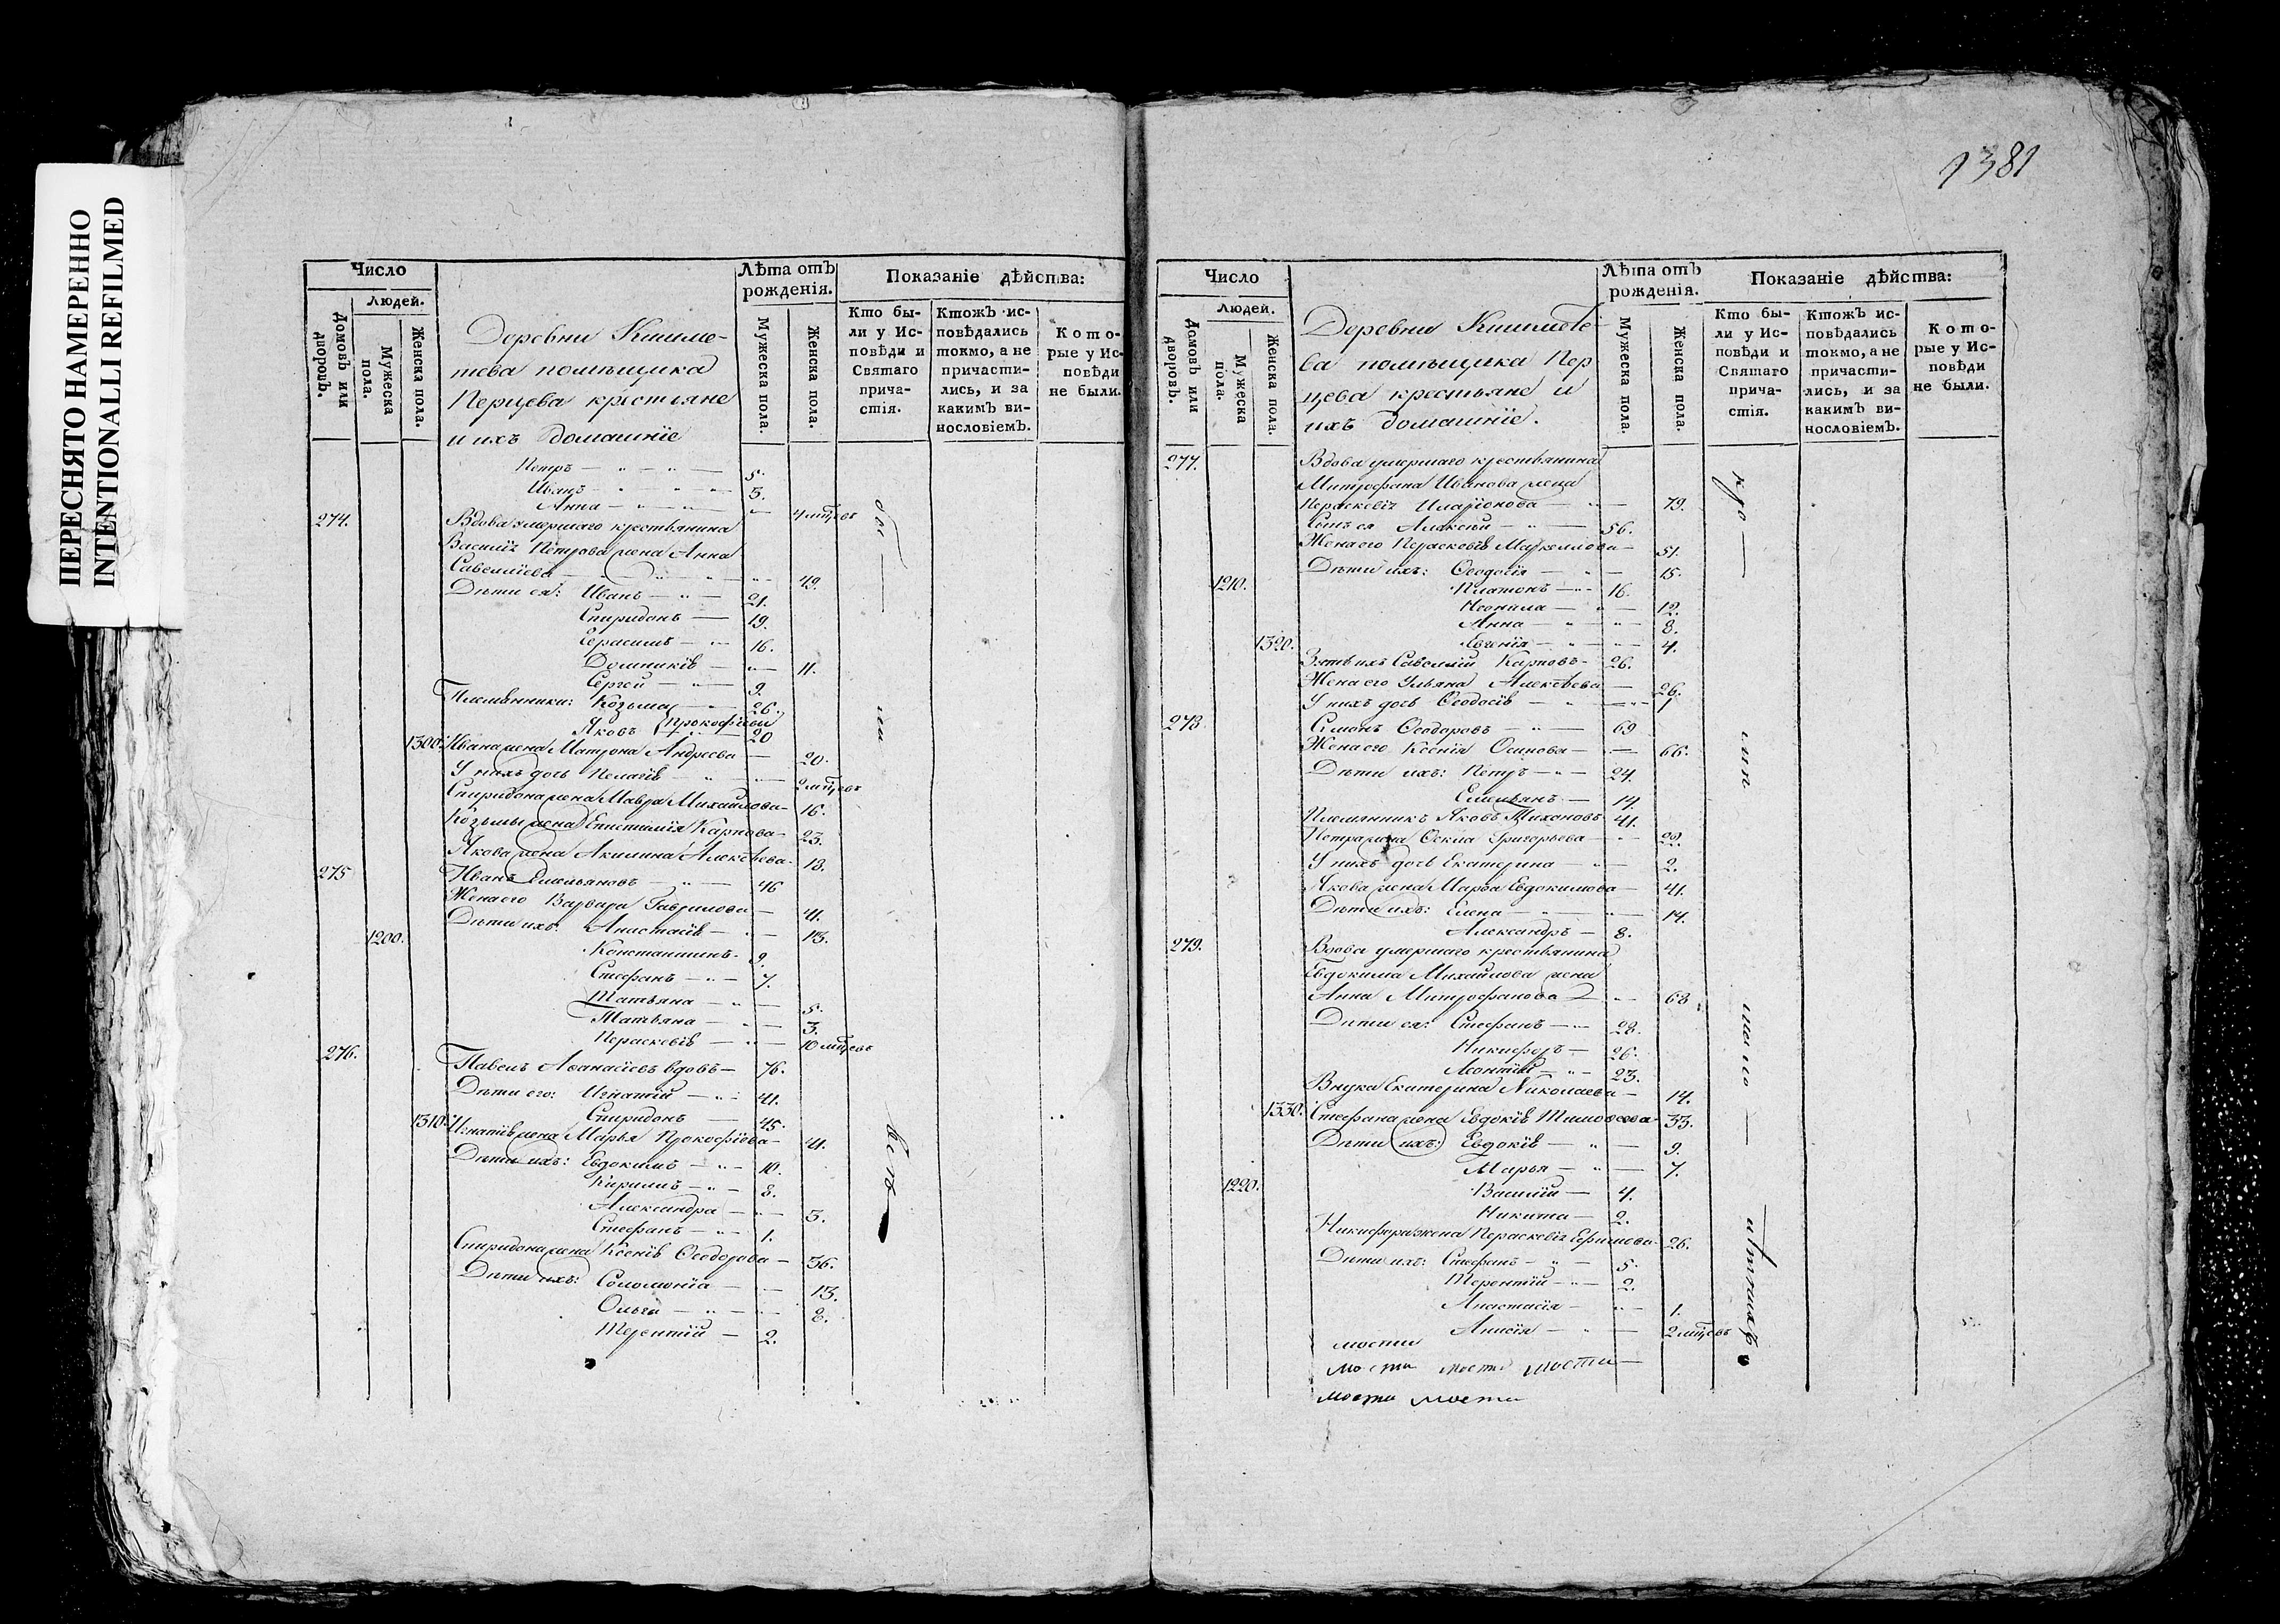 ПЕРЕСНЯТО НАМЕРЕННО
INTENTIONALLI REFILMED
Число
Людей.
Домовъ или дворовъ.
Мужеска пола.
Женска пола.
Деревни Кишме-
тева помѣщика
Перцева крестьяне
и ихъ домашніе
Лѣта отъ рожденія.
Мужеска пола.
Женска пола.
Показаніе дѣйства:
Кто бы-
ли у Ис-
повѣди и
Святаго
прича-
стія.
КтожЪ ис-
повѣдались
токмо, а не
причасти-
лись, и за
какимЪ ви-
нословіемЪ.
Кото-
рые у Ис-
повѣди
не были.
Петръ — 5.
Иванъ — 3.
Анна — 4 мцовъ
274. Вдова умершаго крестьянина
Василія Петрова жена Анна
Савеліева — 49.
Дѣти ея: Иванъ — 21.
Спиридонъ — 19.
Герасимъ — 16.
Домникія — 11.
Сергей — 9.
Племянники: Козьма — 26.
Яковъ Прокофіевы — 20
1300. Ивана жена Матрона Андреева — 20.
У нихъ дочь Пелагія — 2 мцовъ
Спиридона жена Мавра Михайлова — 16.
Козьмы жена Епистимія Карпова — 23.
Якова жена Акилина Алексѣева — 18.
275 Иванъ Емельяновъ — 46
Жена его Варвара Гаврилова — 41.
Дѣти ихъ: Анастасія — 13.
1200. Константинъ — 9.
Стефанъ — 7.
Татьяна — 5.
Татьяна — 3.
Параскевія — 10 мцовъ
276. Павелъ Афанасіевъ вдовъ — 76.
Дѣти его: Игнатій — 41.
Спиридонъ — 45.
1310. Игнатія жена Марья Прокофіева — 41.
Дѣти ихъ: Евдокимъ — 10.
Кирилъ — 8.
Александра — 3.
Стефанъ — 1.
Спиридона жена Ксенія Ѳеодорова — 36.
Дѣти ихъ: Соломонія — 13.
Ольга — 8.
Терентій — 2.
1381
Число
Людей.
Домовъ или дворовъ.
Мужеска пола.
Женска пола.
Деревни Кишмете-
ва помѣщика Пер
цева крестьяне и
ихъ домашніе.
Лѣта отъ рожденія.
Мужеска пола.
Женска пола.
Показаніе дѣйства:
Кто бы-
ли у Ис-
повѣди и
Святаго
прича-
стія.
КтожЪ ис-
повѣдались
токмо, а не
причасти-
лись, и за
какимЪ ви-
нословіемЪ.
Кото-
рые у Ис-
повѣди
не были.
277. Вдова умершаго крестьянина
Митрофана Иванова жена
Параскевія Иларіонова — 79.
Сынъ ея Алексѣй — 56.
Жена его Параскевія Маркеллова — 51.
Дѣти ихъ: Ѳеодосія — 15.
1210. Платонъ — 16.
Неонила — 12.
Анна — 8.
1320. Евгенія — 4.
Зять ихъ Савелій Карповъ — 26.
Жена его Ульяна Алексѣева — 26.
У нихъ дочь Ѳеодосія — 1
278 Симонъ Ѳеодоровъ — 69
Жена его Ксенія Осипова — 66.
Дѣти ихъ: Петръ — 24.
Емельянъ — 14.
Племянникъ Яковъ Тихоновъ 41.
Петра жена Ѳекла Григорьева — 22.
У нихъ дочь Екатерина — 2.
Якова жена Марѳа Евдокимова — 41.
Дѣти ихъ: Елена — 14.
Александръ — 8.
279. Вдова умершаго крестьянина
Евдокима Михайлова жена
Анна Митрофанова — 68
Дѣти ея: Стефанъ — 28.
Никифоръ — 26.
Леонтій — 23.
Внука Екатерина Николаева — 14.
1330. Стефана жена Евдокія Тимоѳеева — 33.
Дѣти ихъ: Евдокія — 9.
Марья — 7.
1220. Василій — 4.
Никита — 2.
Никифора жена Параскевія Ефимова — 26.
Дѣти ихъ: Стефанъ — 5.
Терентій — 2.
Анастасія — 1.
Анисія — 2 мцовъ
мости
мости мости мости
мости мости